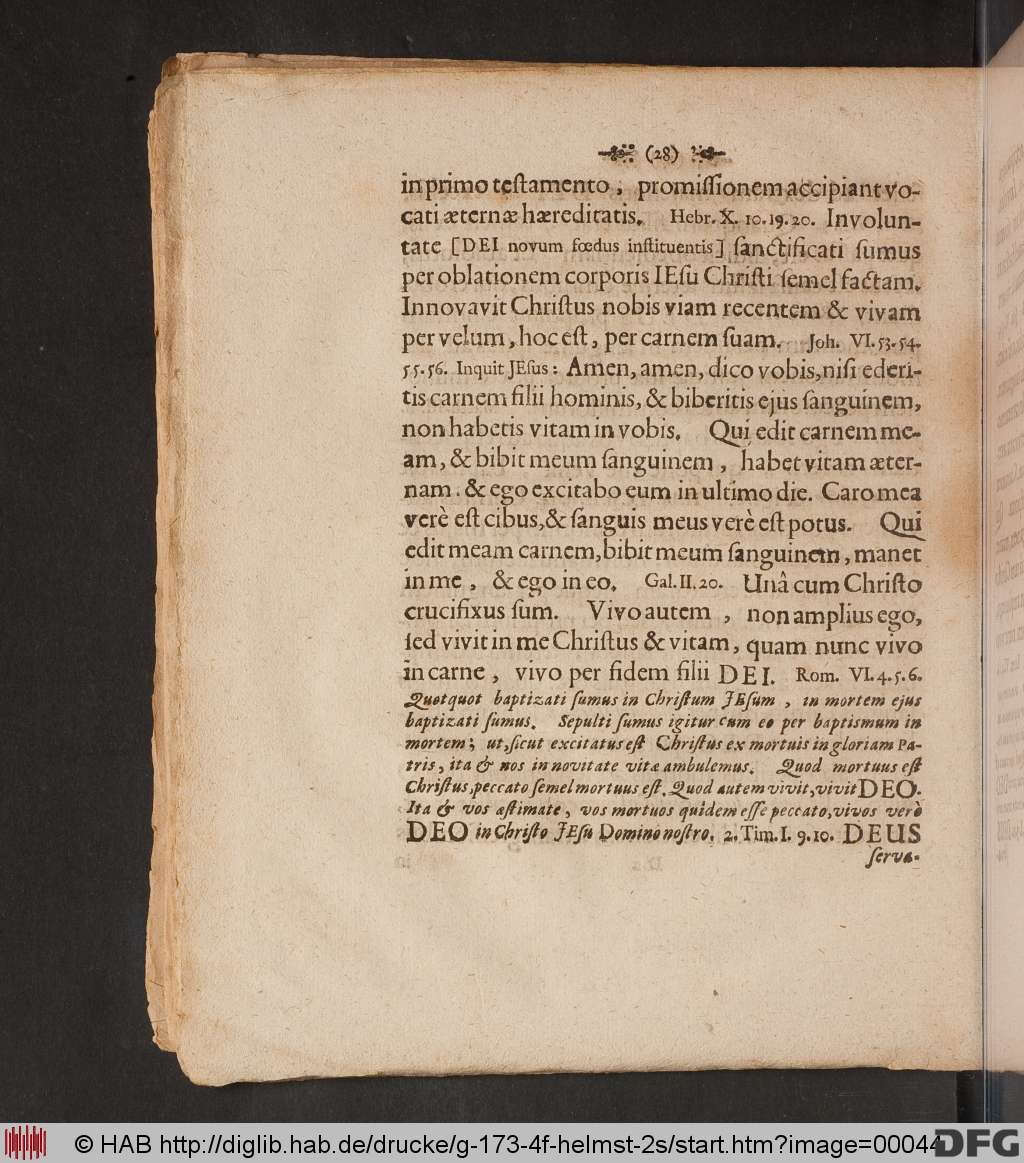 (28)
in primo teſtamento, promiſſionem accipiant vo-
cati æternæ hæreditatis. Hebr. X. 10. 19. 20. Involun-
tate [DEI novum fœdus inſtituentis] ſanctificati ſumus
per oblationem corporis IEſu Chriſti ſemel factam.
Innovavit Chriſtus nobis viam recentem & vivam
per velum, hoc eſt, per carnem ſuam. Joh. VI. 53. 54.
55. 56. Inquit JEſus: Amen, amen, dico vobis, niſi ederi-
tis carnem filii hominis, & biberitis ejus ſanguinem,
non habetis vitam in vobis. Qui edit carnem me-
am, & bibit meum ſanguinem, habet vitam æter-
nam. & ego excitabo eum in ultimo die. Caro mea
verè eſt cibus, & ſanguis meus verè eſt potus. Qui
edit meam carnem, bibit meum ſanguinem, manet
in me, & ego in eo. Gal. II. 20. Unâ cum Chriſto
crucifixus ſum. Vivo autem, non amplius ego,
ſed vivit in me Chriſtus & vitam, quam nunc vivo
in carne, vivo per fidem filii DEI. Rom. VI. 4. 5. 6.
Quotquot baptizati ſumus in Chriſtum JEſum, in mortem ejus
baptizati ſumus. Sepulti ſumus igitur cum eo per baptismum in
mortem; ut, ſicut excitatus eſt Chriſtus ex mortuis in gloriam Pa-
tris, ita & nos in novitate vitæ ambulemus. Quod mortuus eſt
Chriſtus, peccato ſemel mortuus eſt. Quod autem vivit, vivit DEO.
Ita & vos æſtimate, vos mortuos quidem eſſe peccato, vivos verò
DEO in Chriſto JEſu Domino noſtro. 2. Tim. I. 9. 10. DEUS
ſerva-
© HAB http://diglib.hab.de/drucke/g-173-4f-helmst-2s/start.htm?image=00044
DFG